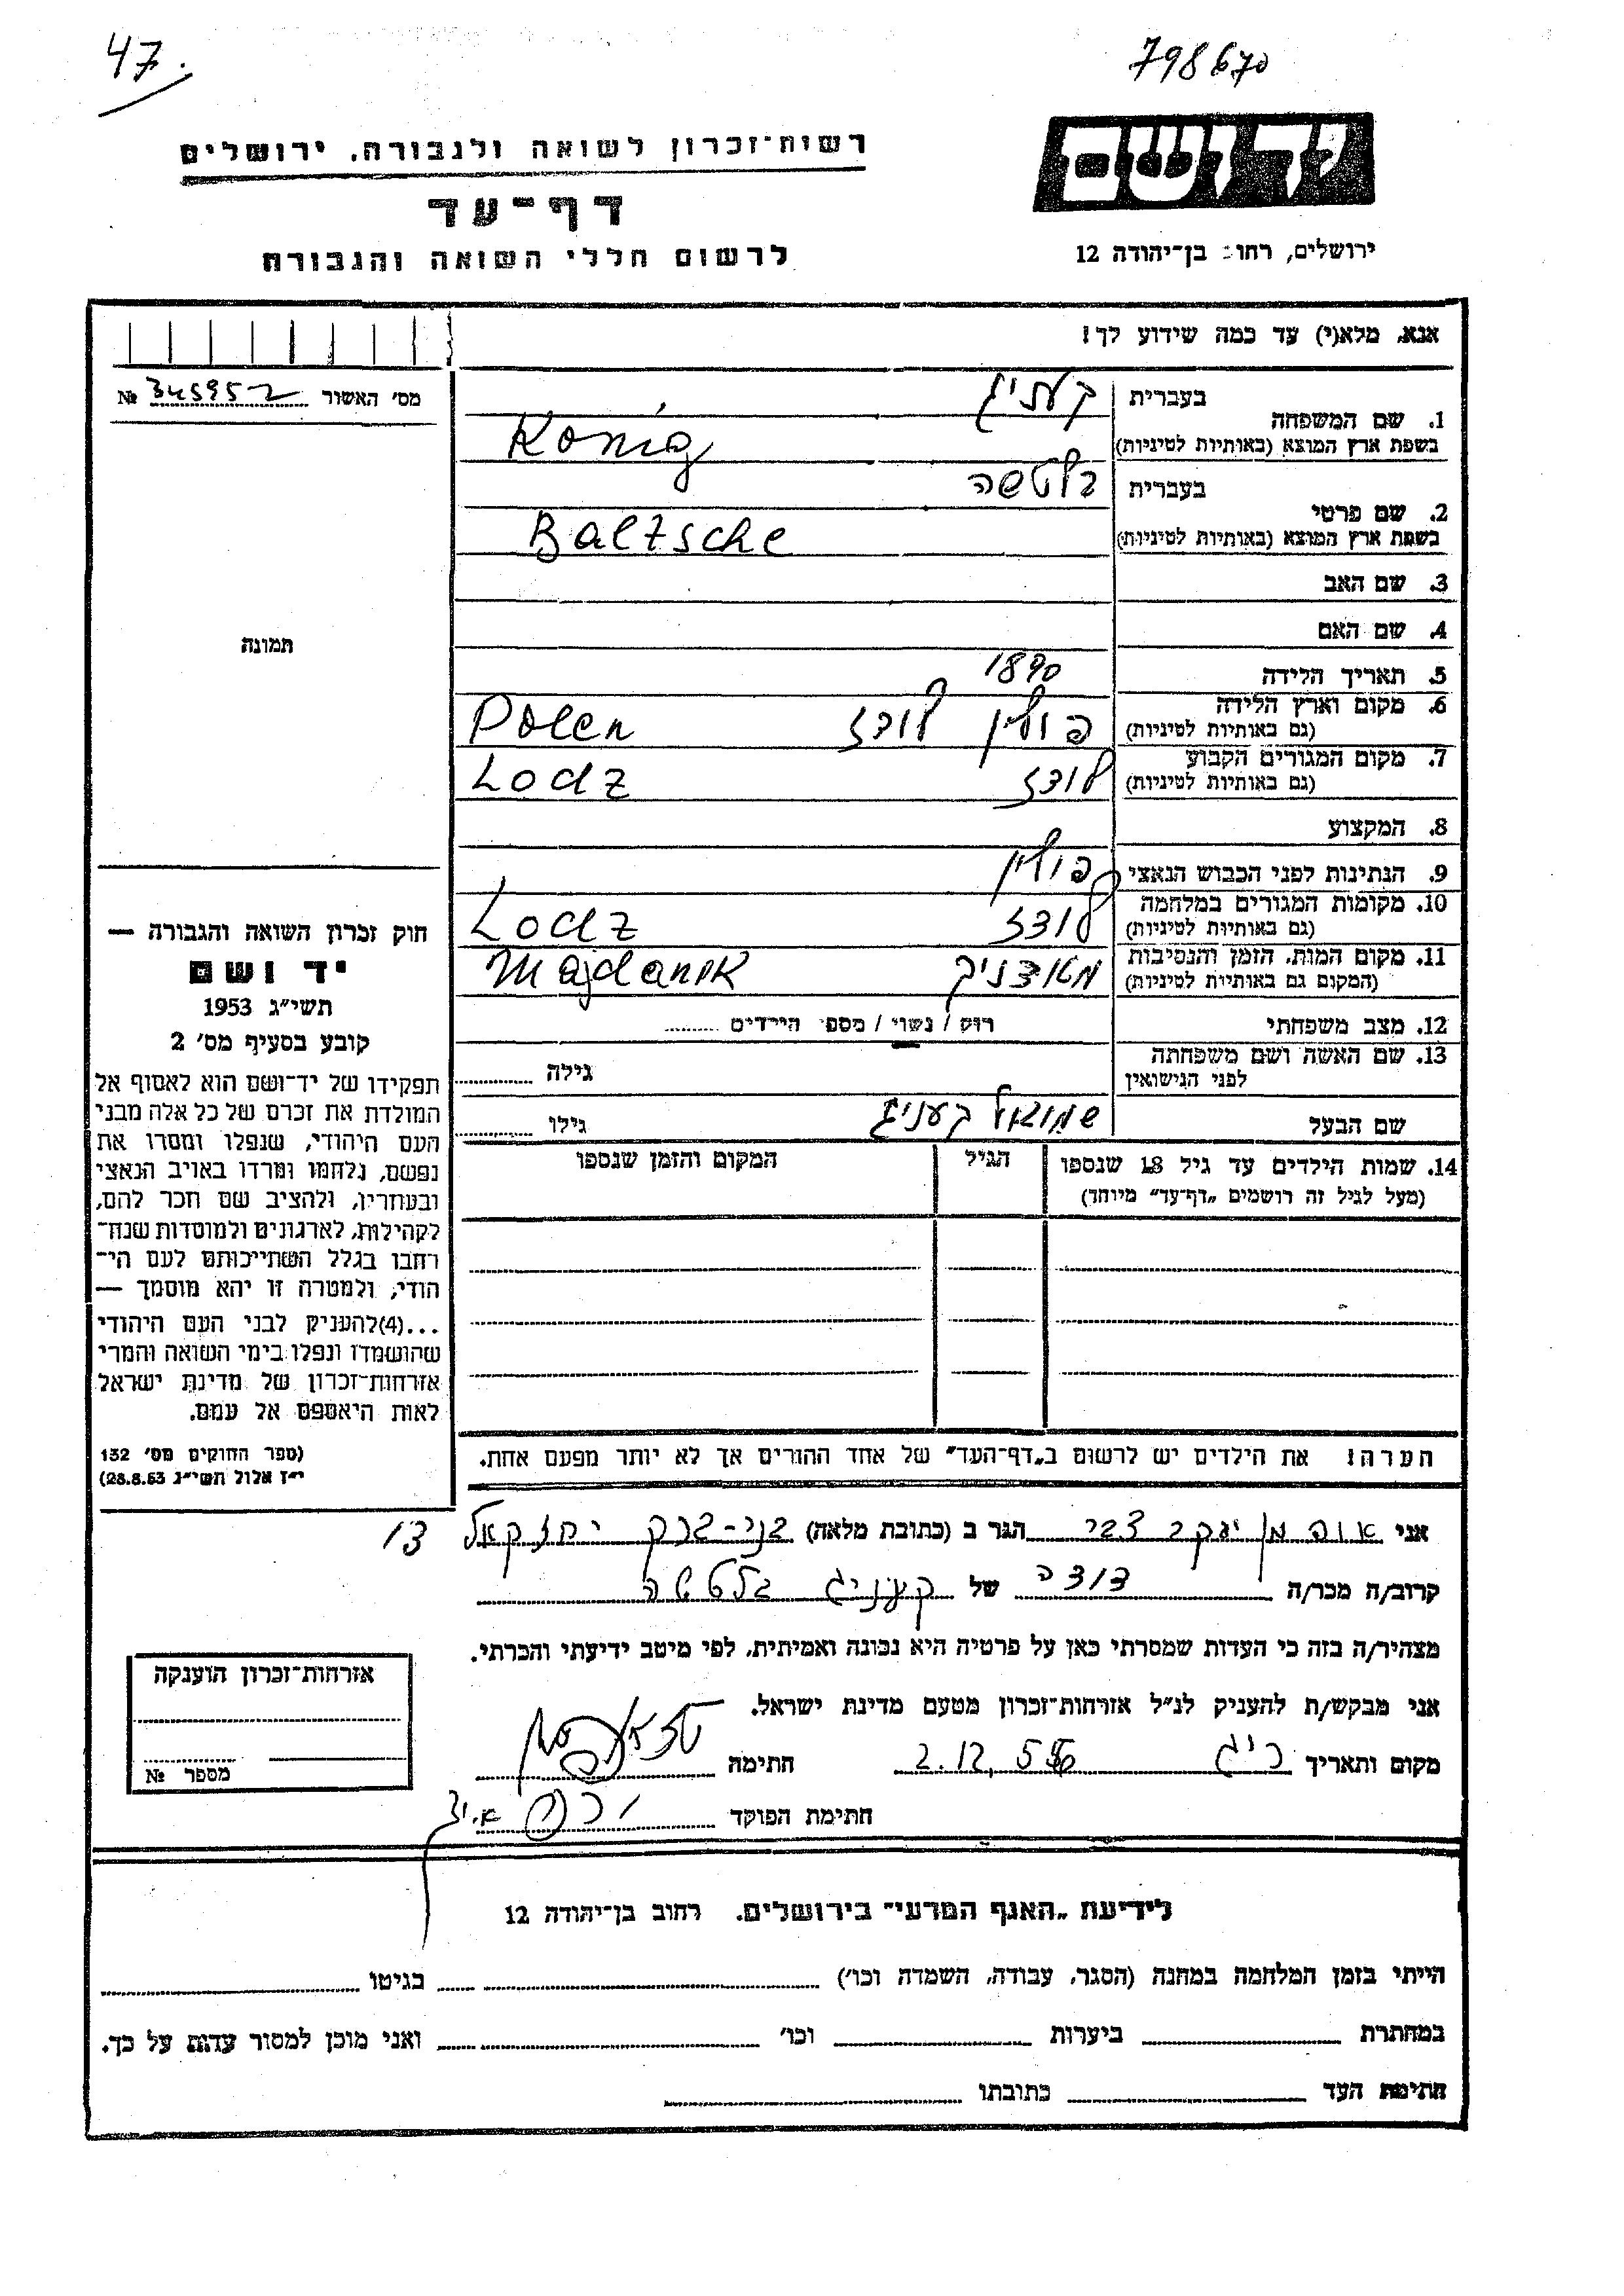 47.
798670
רשות־זכרון לשואה ולגבורה, ירושלים
יד ושם
דף־עד
לרשום חללי השואה והגבורה
ירושלים, רחוב בן־יהודה 12
אנא, מלא(י) עד כמה שידוע לך!
מס׳ האשור 345952 №
1. שם המשפחה
בעברית קעניג
בשפת ארץ המוצא (באותיות לטיניות) König
2. שם פרטי
בעברית בלטשה
בשפת ארץ המוצא (באותיות לטיניות) Baltsche
3. שם האב
4. שם האם
תמונה
5. תאריך הלידה 1890
6. מקום וארץ הלידה
(גם באותיות לטיניות) פולין לודז Polen
7. מקום המגורים הקבוע
(גם באותיות לטיניות) לודז Lodz
8. המקצוע
9. הנתינות לפני הכבוש הנאצי פולין
10. מקומות המגורים במלחמה
(גם באותיות לטיניות) לודז Lodz
11. מקום המות, הזמן והנסיבות
(המקום גם באותיות לטיניות) מאידניק Majdanik
12. מצב משפחתי רוק / נשוי / מספר הילדים
13. שם האשה ושם משפחתה
לפני הנישואין גילה
שם הבעל שמואל קעניג גילו
14. שמות הילדים עד גיל 18 שנספו הגיל המקום והזמן שנספו
(מעל לגיל זה רושמים „דף־עד” מיוחד)
חוק זכרון השואה והגבורה —
יד ושם
תשי״ג 1953
קובע בסעיף מס׳ 2
תפקידו של יד־ושם הוא לאסוף אל
המולדת את זכרם של כל אלה מבני
העם היהודי, שנפלו ומסרו את
נפשם, נלחמו ומרדו באויב הנאצי
ובעוזריו, ולהציב שם וזכר להם,
לקהילות, לארגונים ולמוסדות שנח־
רבו בגלל השתייכותם לעם הי־
הודי; ולמטרה זו יהא מוסמך —
...(4)להעניק לבני העם היהודי
שהושמדו ונפלו בימי השואה והמרי
אזרחות־זכרון של מדינת ישראל
לאות היאספם אל עמם.
(ספר החוקים מס׳ 132
י״ז אלול תשי״ג 28.8.53)
הערה! את הילדים יש לרשום ב„דף־העד” של אחד ההורים אך לא יותר מפעם אחת.
אני יעקב צבי הגר ב (כתובת מלאה) בני-ברק יחזקאל 13
קרוב/ה מכר/ה דודה של קעניג בלטשה
מצהיר/ה בזה כי העדות שמסרתי כאן על פרטיה היא נכונה ואמיתית, לפי מיטב ידיעתי והכרתי.
אני מבקש/ת להעניק לנ״ל אזרחות־זכרון מטעם מדינת ישראל.
מקום ותאריך 2.12.55 חתימה
חתימת הפוקד
אזרחות־זכרון הוענקה
מספר №
לידיעת „האגף המדעי” בירושלים, רחוב בן־יהודה 12
הייתי בזמן המלחמה במחנה (הסגר, עבודה, השמדה וכו׳) בגיטו
במחתרת ביערות וכו׳ ואני מוכן למסור עדות על כך.
חתימת העד כתובתו